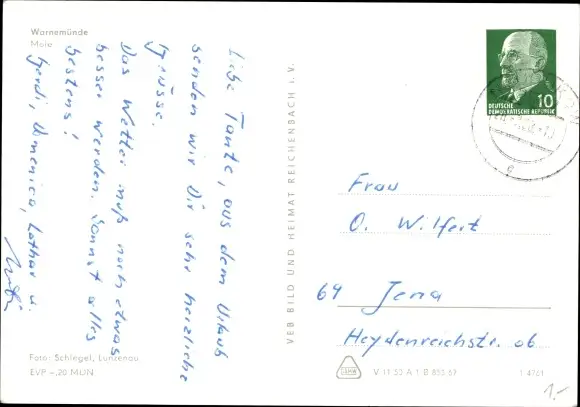 Warnemünde
Mole
Liebe Tante, aus dem Urlaub
senden wir Dir sehr herzliche
Grüsse.
Das Wetter muß noch etwas
besser werden. Sonst alles
bestens!
Gerdi, Domenica, Lothar u.
Foto: Schlegel, Lunzenau
EVP -,20 MDN
VEB BILD UND HEIMAT REICHENBACH I. V.
10
DEUTSCHE
DEMOKRATISCHE REPUBLIK
Frau
O. Wilfert
69 Jena
Heydenreichstr. 06
V 11 53 A 1 B 855/67
1.4761
1.-